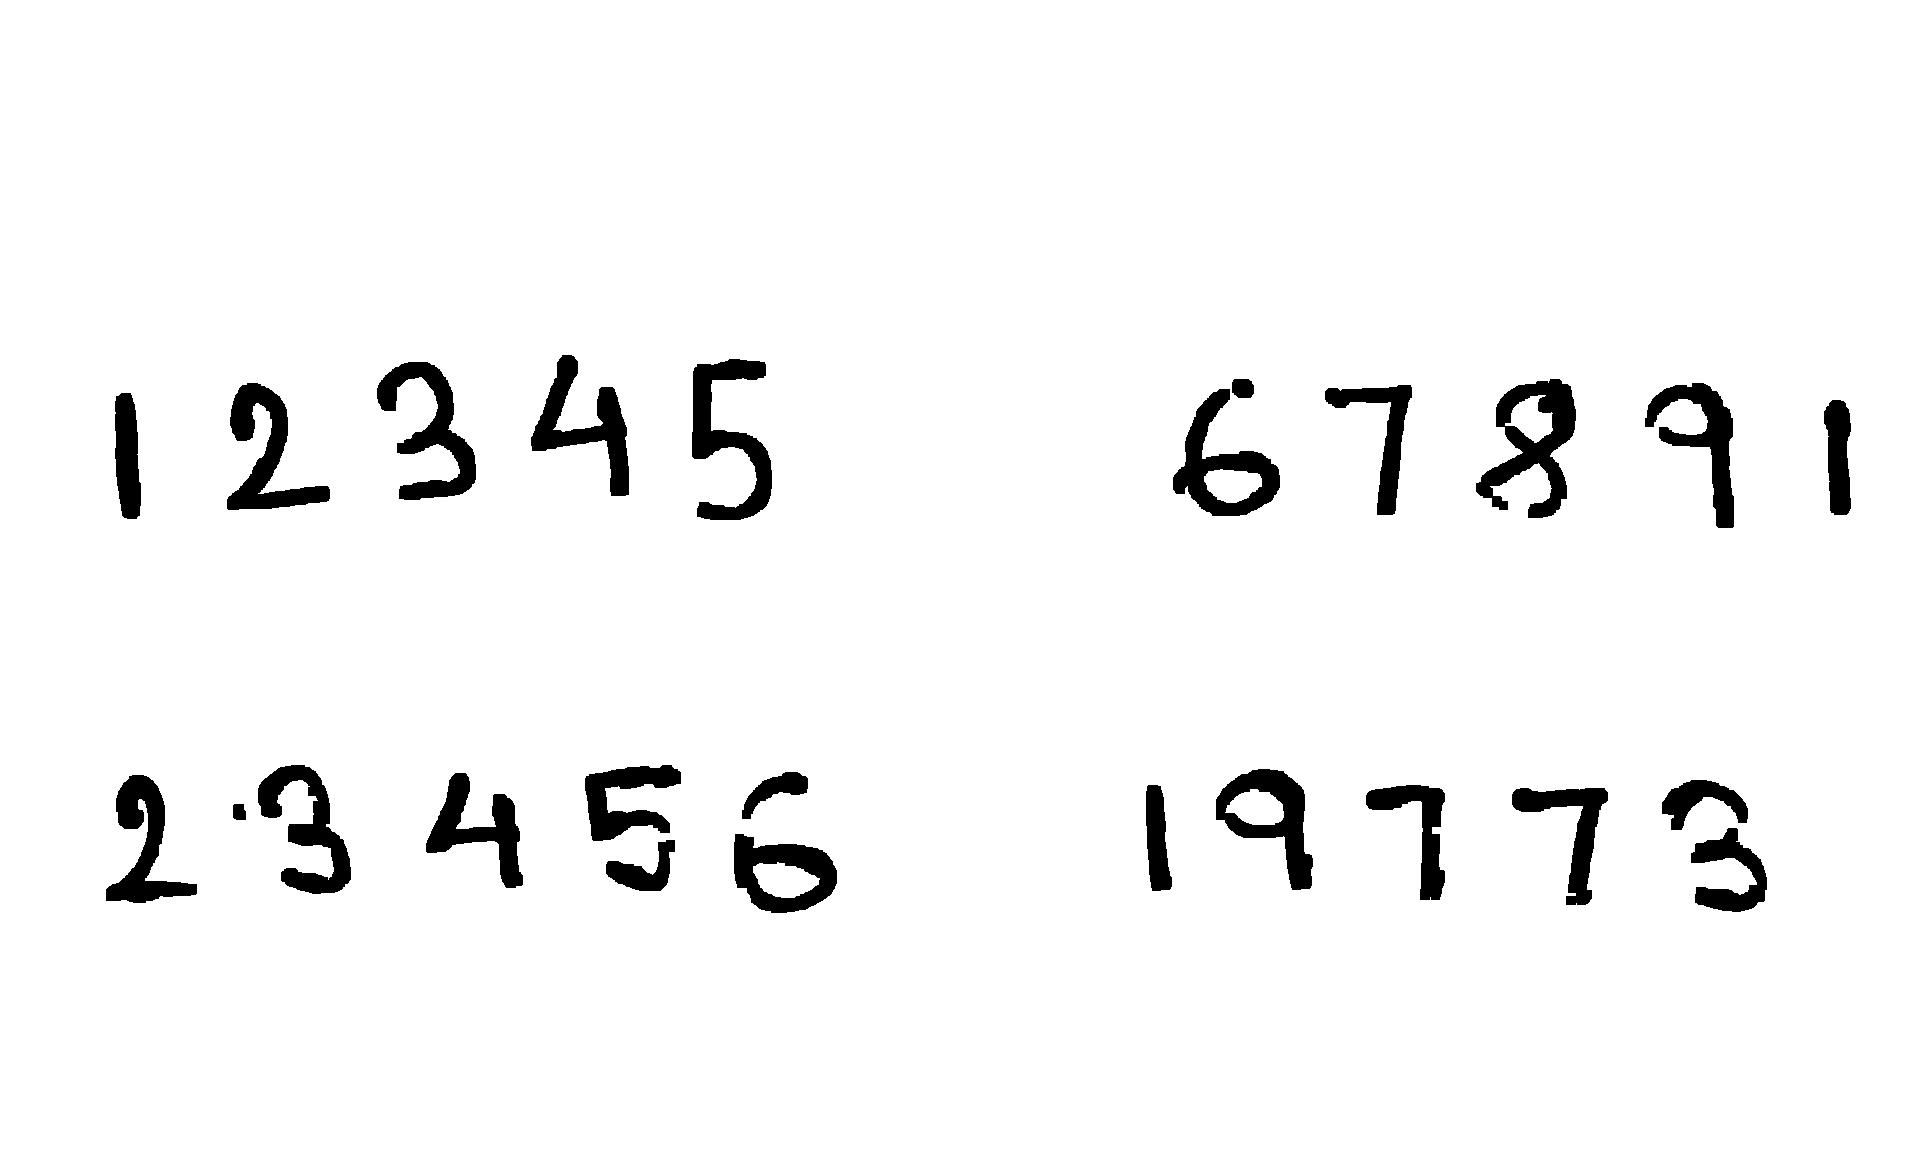 12345 67891
23456 19773